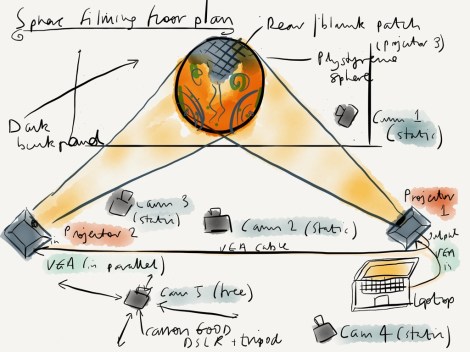 Sphere filming floor plan
Rear / blank patch
(projector 3)
Polystyrene
sphere
Cam 1
(static)
Dark
background
Cam 3
(static)
Cam 2 (static)
Projector
1
Projector 2
in
output
VGA cable
VGA
in
VGA (in parallel)
Cam 5 (free)
laptop
canon 600D
DSLR + tripod
Cam 4 (static)